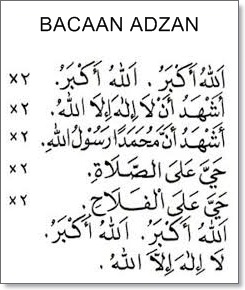 BACAAN ADZAN
اَللهُ أَكْبَرُ . اَللهُ أَكْبَرُ. ×٢
أَشْهَدُ أَنْ لَا إِلٰهَ إِلَّا اللهُ. ×٢
أَشْهَدُ أَنَّ مُحَمَّدًا رَسُوْلُ اللهِ. ×٢
حَيَّ عَلَى الصَّلَاةِ. ×٢
حَيَّ عَلَى الْفَلَاحِ. ×٢
اَللهُ أَكْبَرُ. اَللهُ أَكْبَرُ.
لَا إِلٰهَ إِلَّا اللهُ.